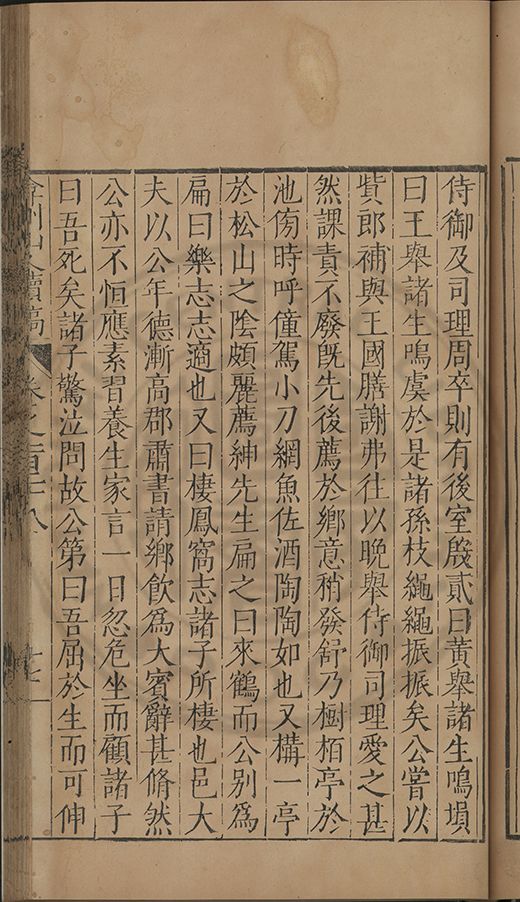 侍御及司理周卒則有後室殷貳曰黃舉諸生鳴塤
曰王舉諸生鳴虞於是諸孫枝繩繩振振矣公嘗以
貲郎補與王國膳謝弗往以晩舉侍御司理愛之甚
然課責不廢旣先後薦於鄉意稍發舒乃樹栢亭於
池傍時呼僮駕小刀網魚佐酒陶陶如也又構一亭
於松山之陰頗麗薦紳先生扁之曰來鶴而公别爲
扁曰樂志志適也又曰棲鳳窩志諸子所棲也邑大
夫以公年德漸高郡肅書請鄉飮爲大賓辭甚脩然
公亦不恒應素習養生家言一日忽危坐而顧諸子
曰吾死矣諸子驚泣問故公第曰吾屈於生而可伸